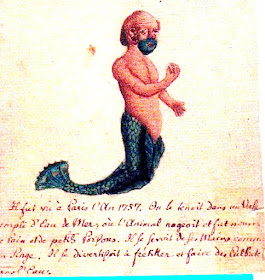 Il fut vû à Paris l'An 1757. On le tenoit dans un
rempli d'Eau de Mer, où l'Animal nageoit et fut nourri
de Pain et de petits Poissons. Il se servoit de ses Mains comme
un Singe. Il se divertissoit à et faire des Culbute
dans l'Eau.